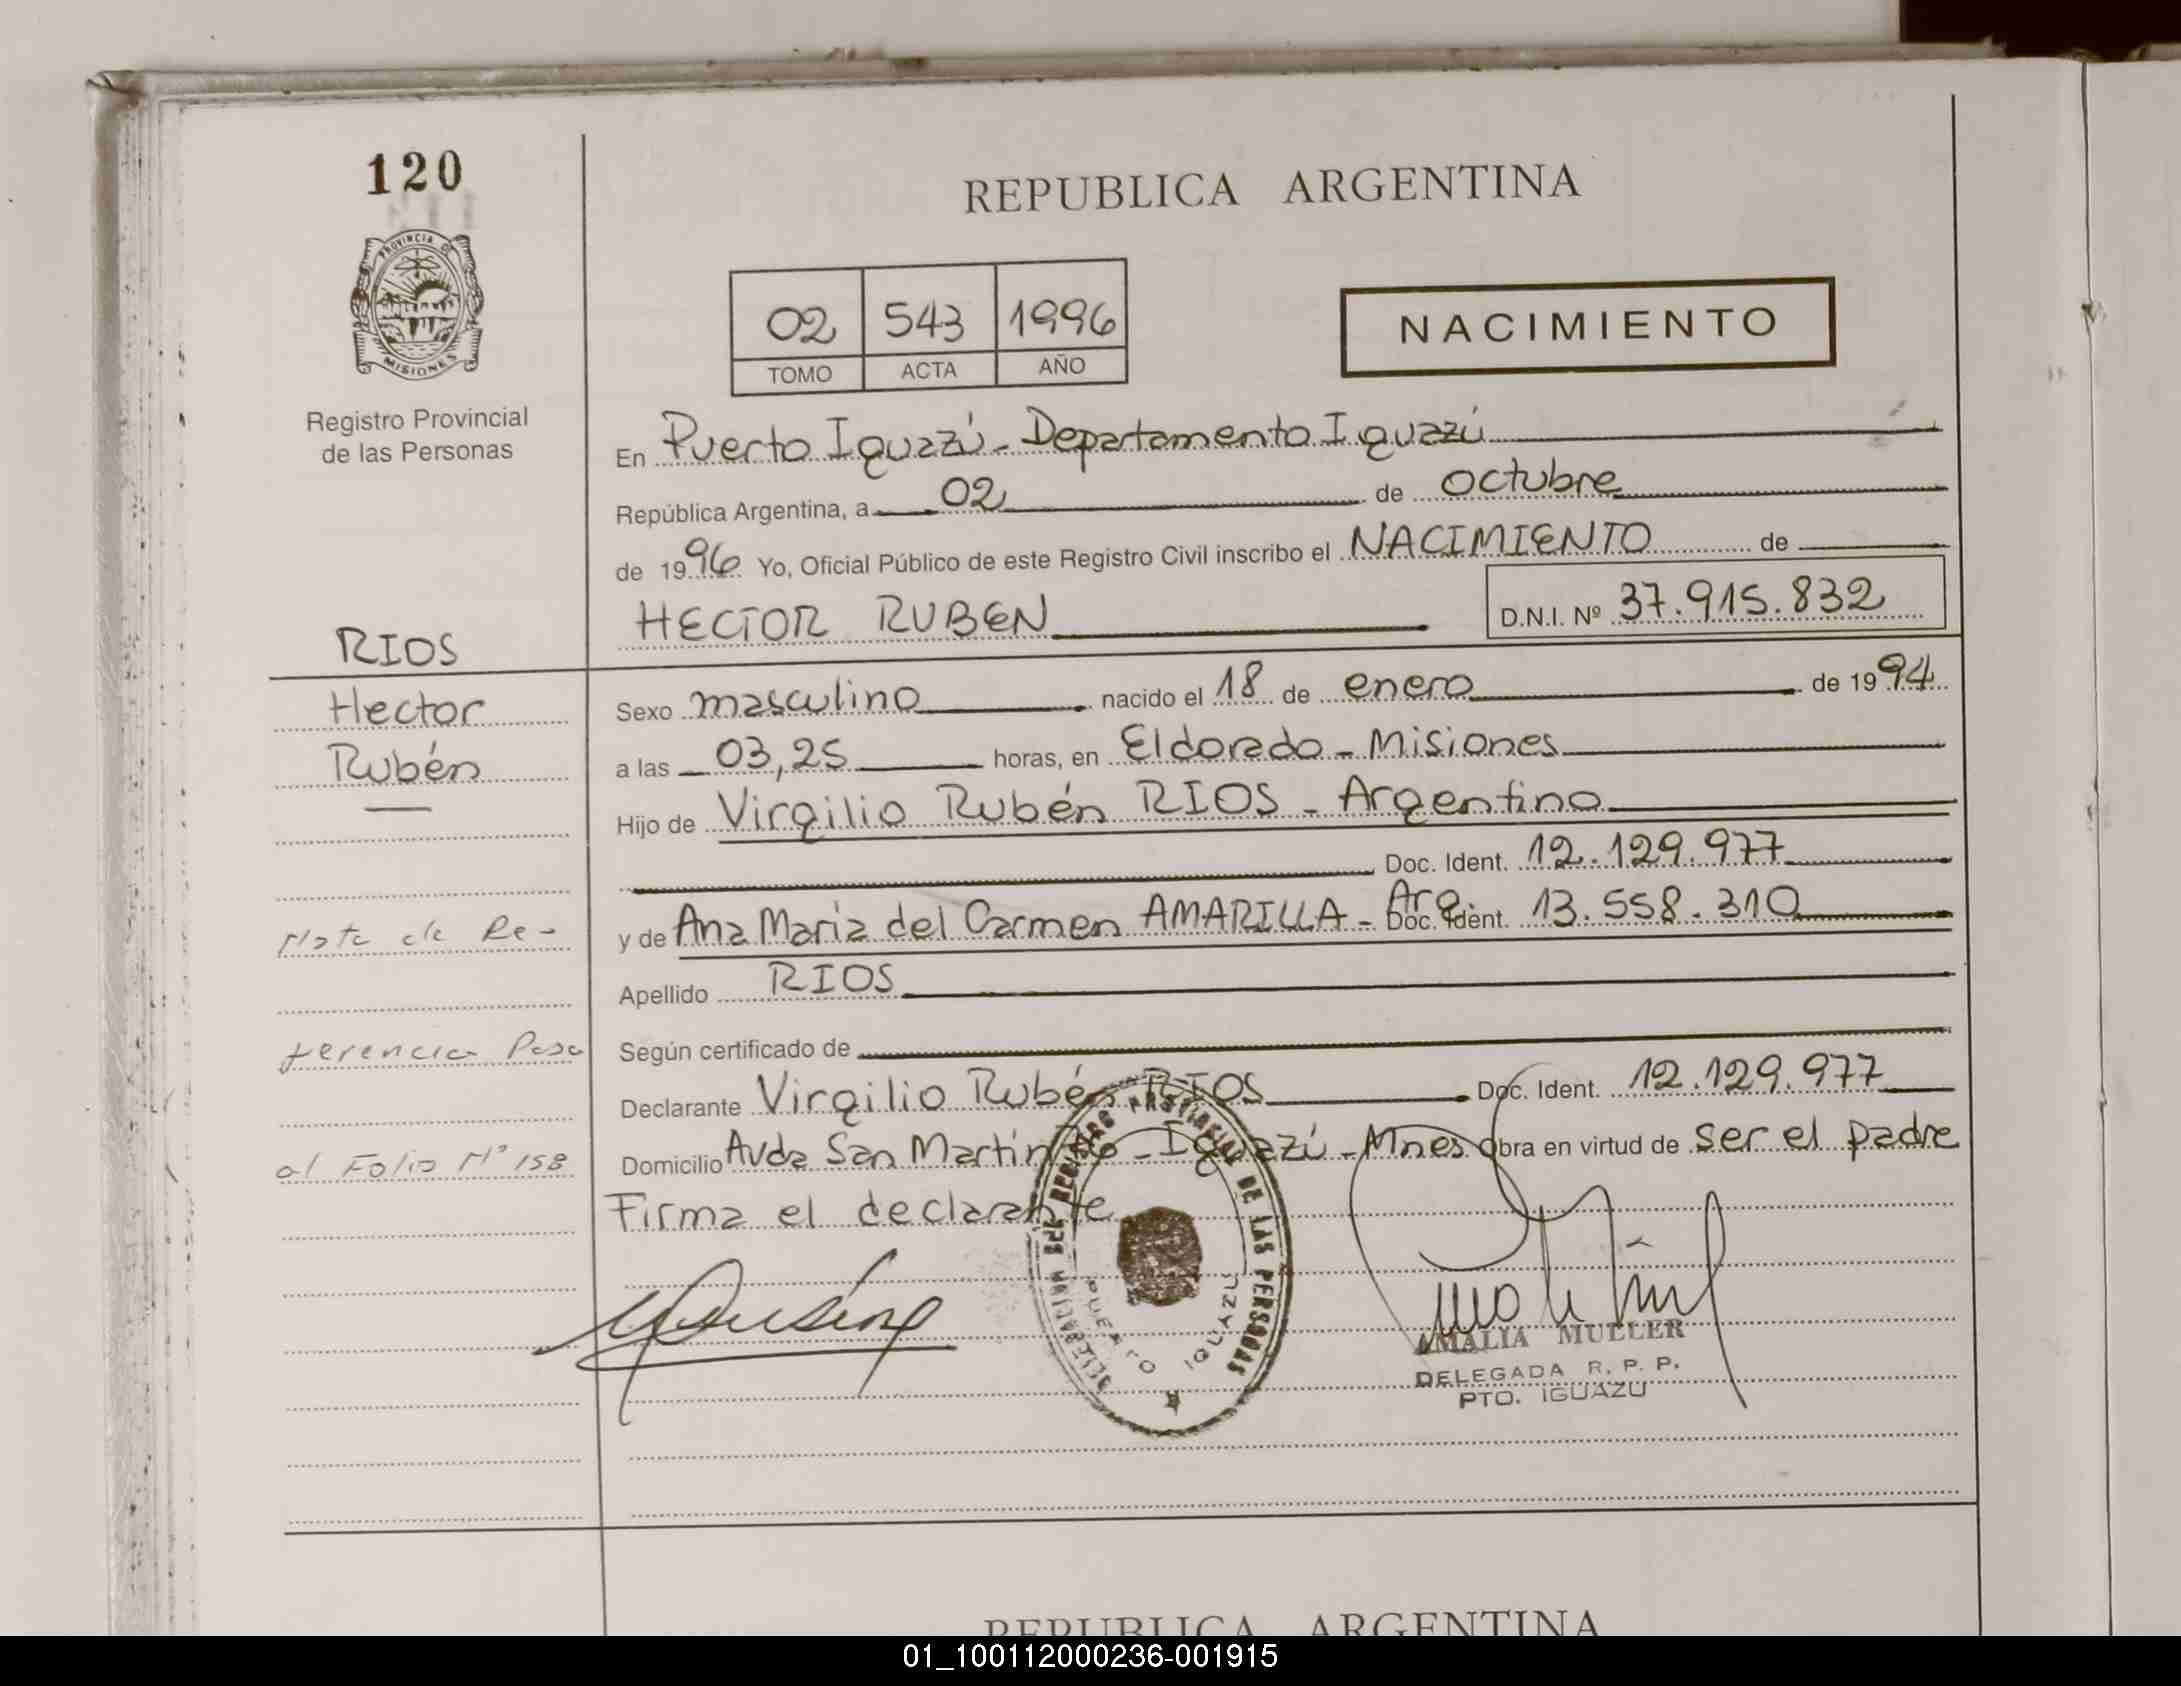 120
PROVINCIA DE
MISIONES
Registro Provincial
de las Personas
REPUBLICA ARGENTINA
02 543 1996
TOMO ACTA AÑO
NACIMIENTO
En Puerto Iguazú - Departamento Iguazú
República Argentina, a 02 de octubre
de 1996 Yo, Oficial Público de este Registro Civil inscribo el NACIMIENTO de
HECTOR RUBEN D.N.I. Nº 37.915.832
RIOS
Hector
Rubén
Sexo masculino nacido el 18 de enero de 1994
a las 03,25 horas, en Eldorado - Misiones
Hijo de Virgilio Rubén RIOS - Argentino
Doc. Ident. 12.129.977
y de Ana Maria del Carmen AMARILLA - Arg. Doc. Ident. 13.558.310
Apellido RIOS
Según certificado de
Declarante Virgilio Rubén RIOS Doc. Ident. 12.129.977
Domicilio Avda San Martin - Iguazú - Mnes Obra en virtud de ser el padre
Firma el declarante
Nota de Re-
ferencia Pasa
al Folio Nº 158
REGISTRO PROVINCIAL DE LAS PERSONAS
PUERTO IGUAZU
AMALIA MULLER
DELEGADA R. P. P.
PTO. IGUAZU
REPUBLICA ARGENTINA
01_100112000236-001915